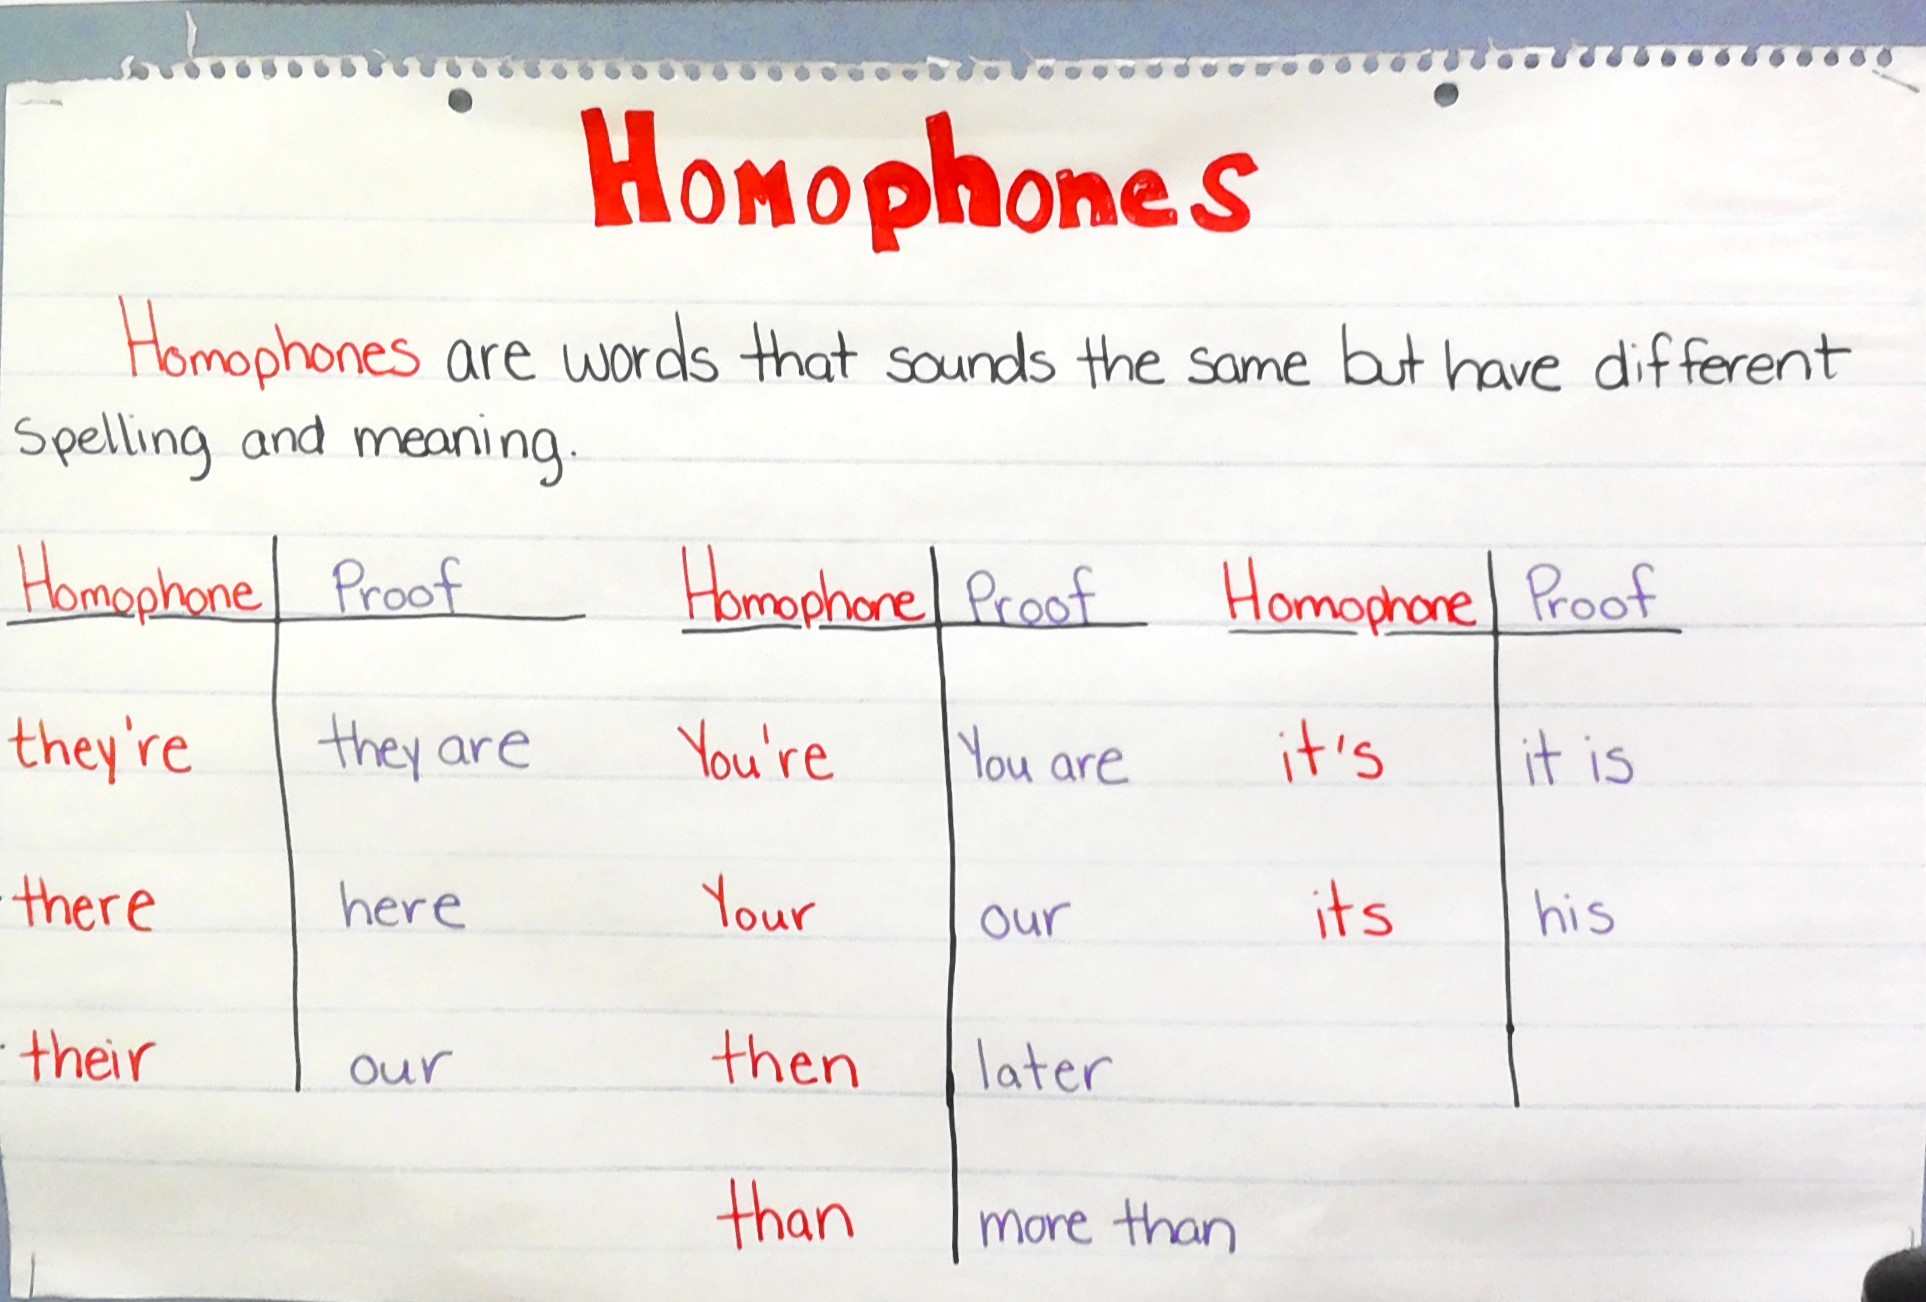 Homophones
Homophones are words that sounds the same but have different
spelling and meaning.
Homophone Proof Homophone Proof Homophone Proof
they're they are You're You are it's it is
there here Your our its his
their our then later
than more than